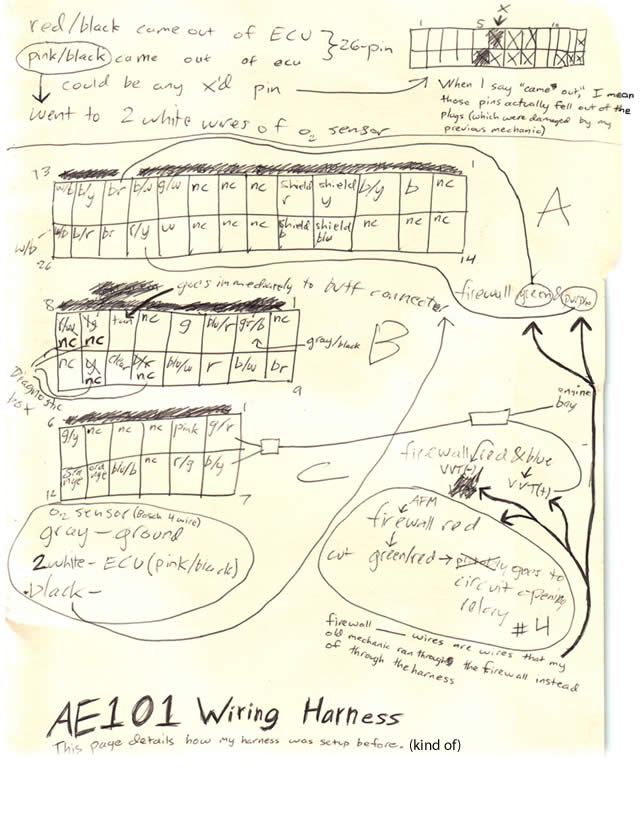 red/black came out of ECU } 26-pin
pink/black came out of ecu
could be any x'd pin
went to 2 white wires of O2 sensor
1 5 x 10
When I say "came out," I mean
those pins actually fell out of the
plugs (which were damaged by my
previous mechanic)
13 1
w/b b/y br b/w g/w nc nc nc shield r shield y b/y b nc
w/b b/r br r/y w nc nc nc shield b shield blu nc nc nc
w/b
26 14
A
firewall green & purple
goes immediately to butt connector
8 1
r/w nc y nc tan nc g blu/r gr/b nc
nc nc blu/w r b/w br
gray/black
9
B
Diagnostic box
6 1
g/y nc nc nc pink g/r
orange orange blu/b nc r/g b/y
12 7
C
engine bay
firewall red & blue
VVT(-)
VVT(+)
O2 sensor (Bosch 4 wire)
gray - ground
2 white - ECU (pink/black)
black -
AFM
firewall red
cut green/red → goes to
circuit opening
relay
#4
firewall ___ wires are wires that my
old mechanic ran through the firewall instead
of through the harness
AE101 Wiring Harness
This page details how my harness was setup before. (kind of)